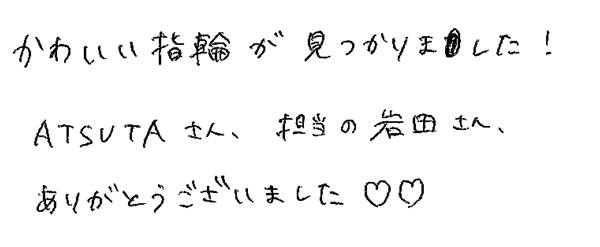 かわいい指輪が見つかりました！
ATSUTAさん、担当の岩田さん、
ありがとうございました♡♡